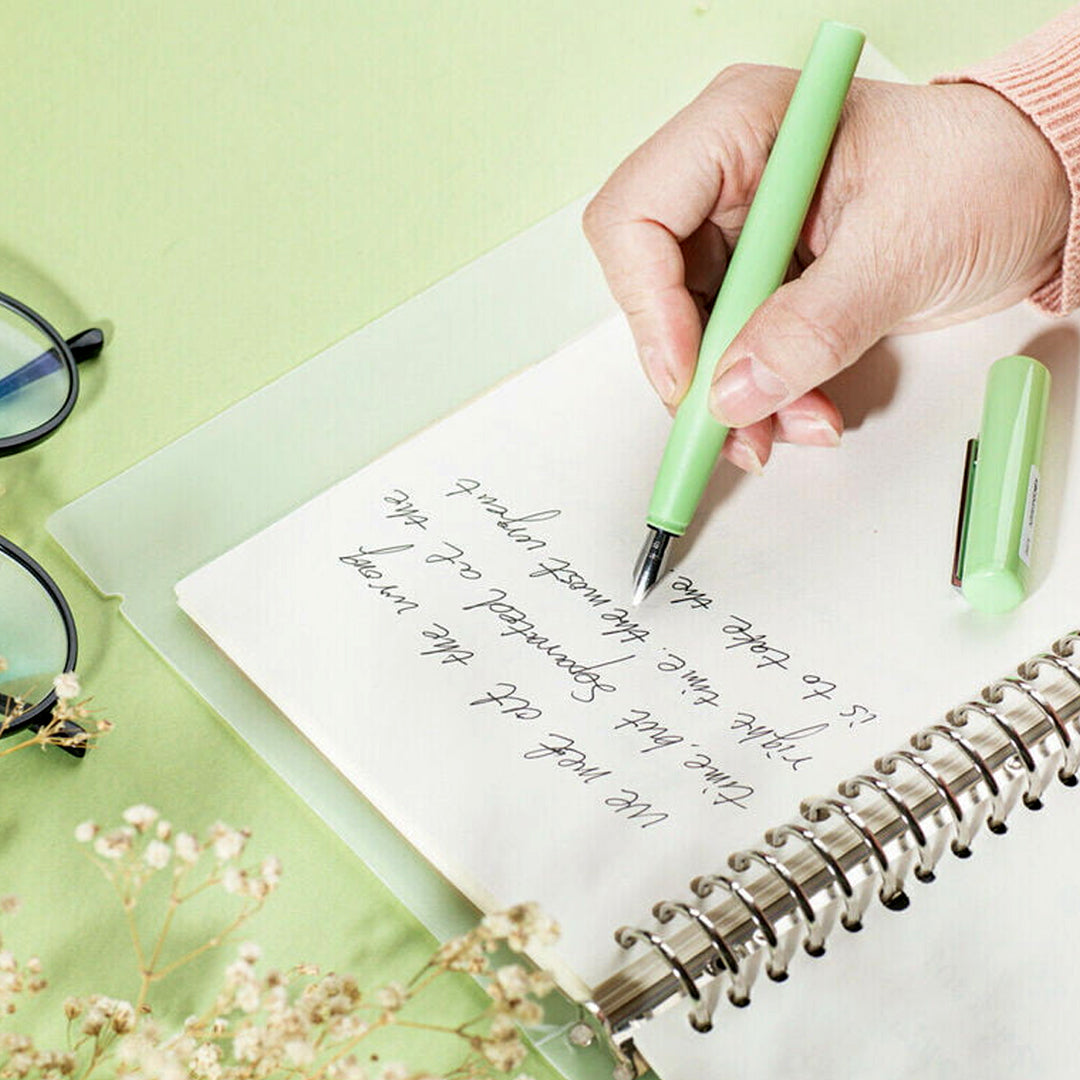 we met at the wrong
time, but Separated at the
right time. the most urgent
is to take the.